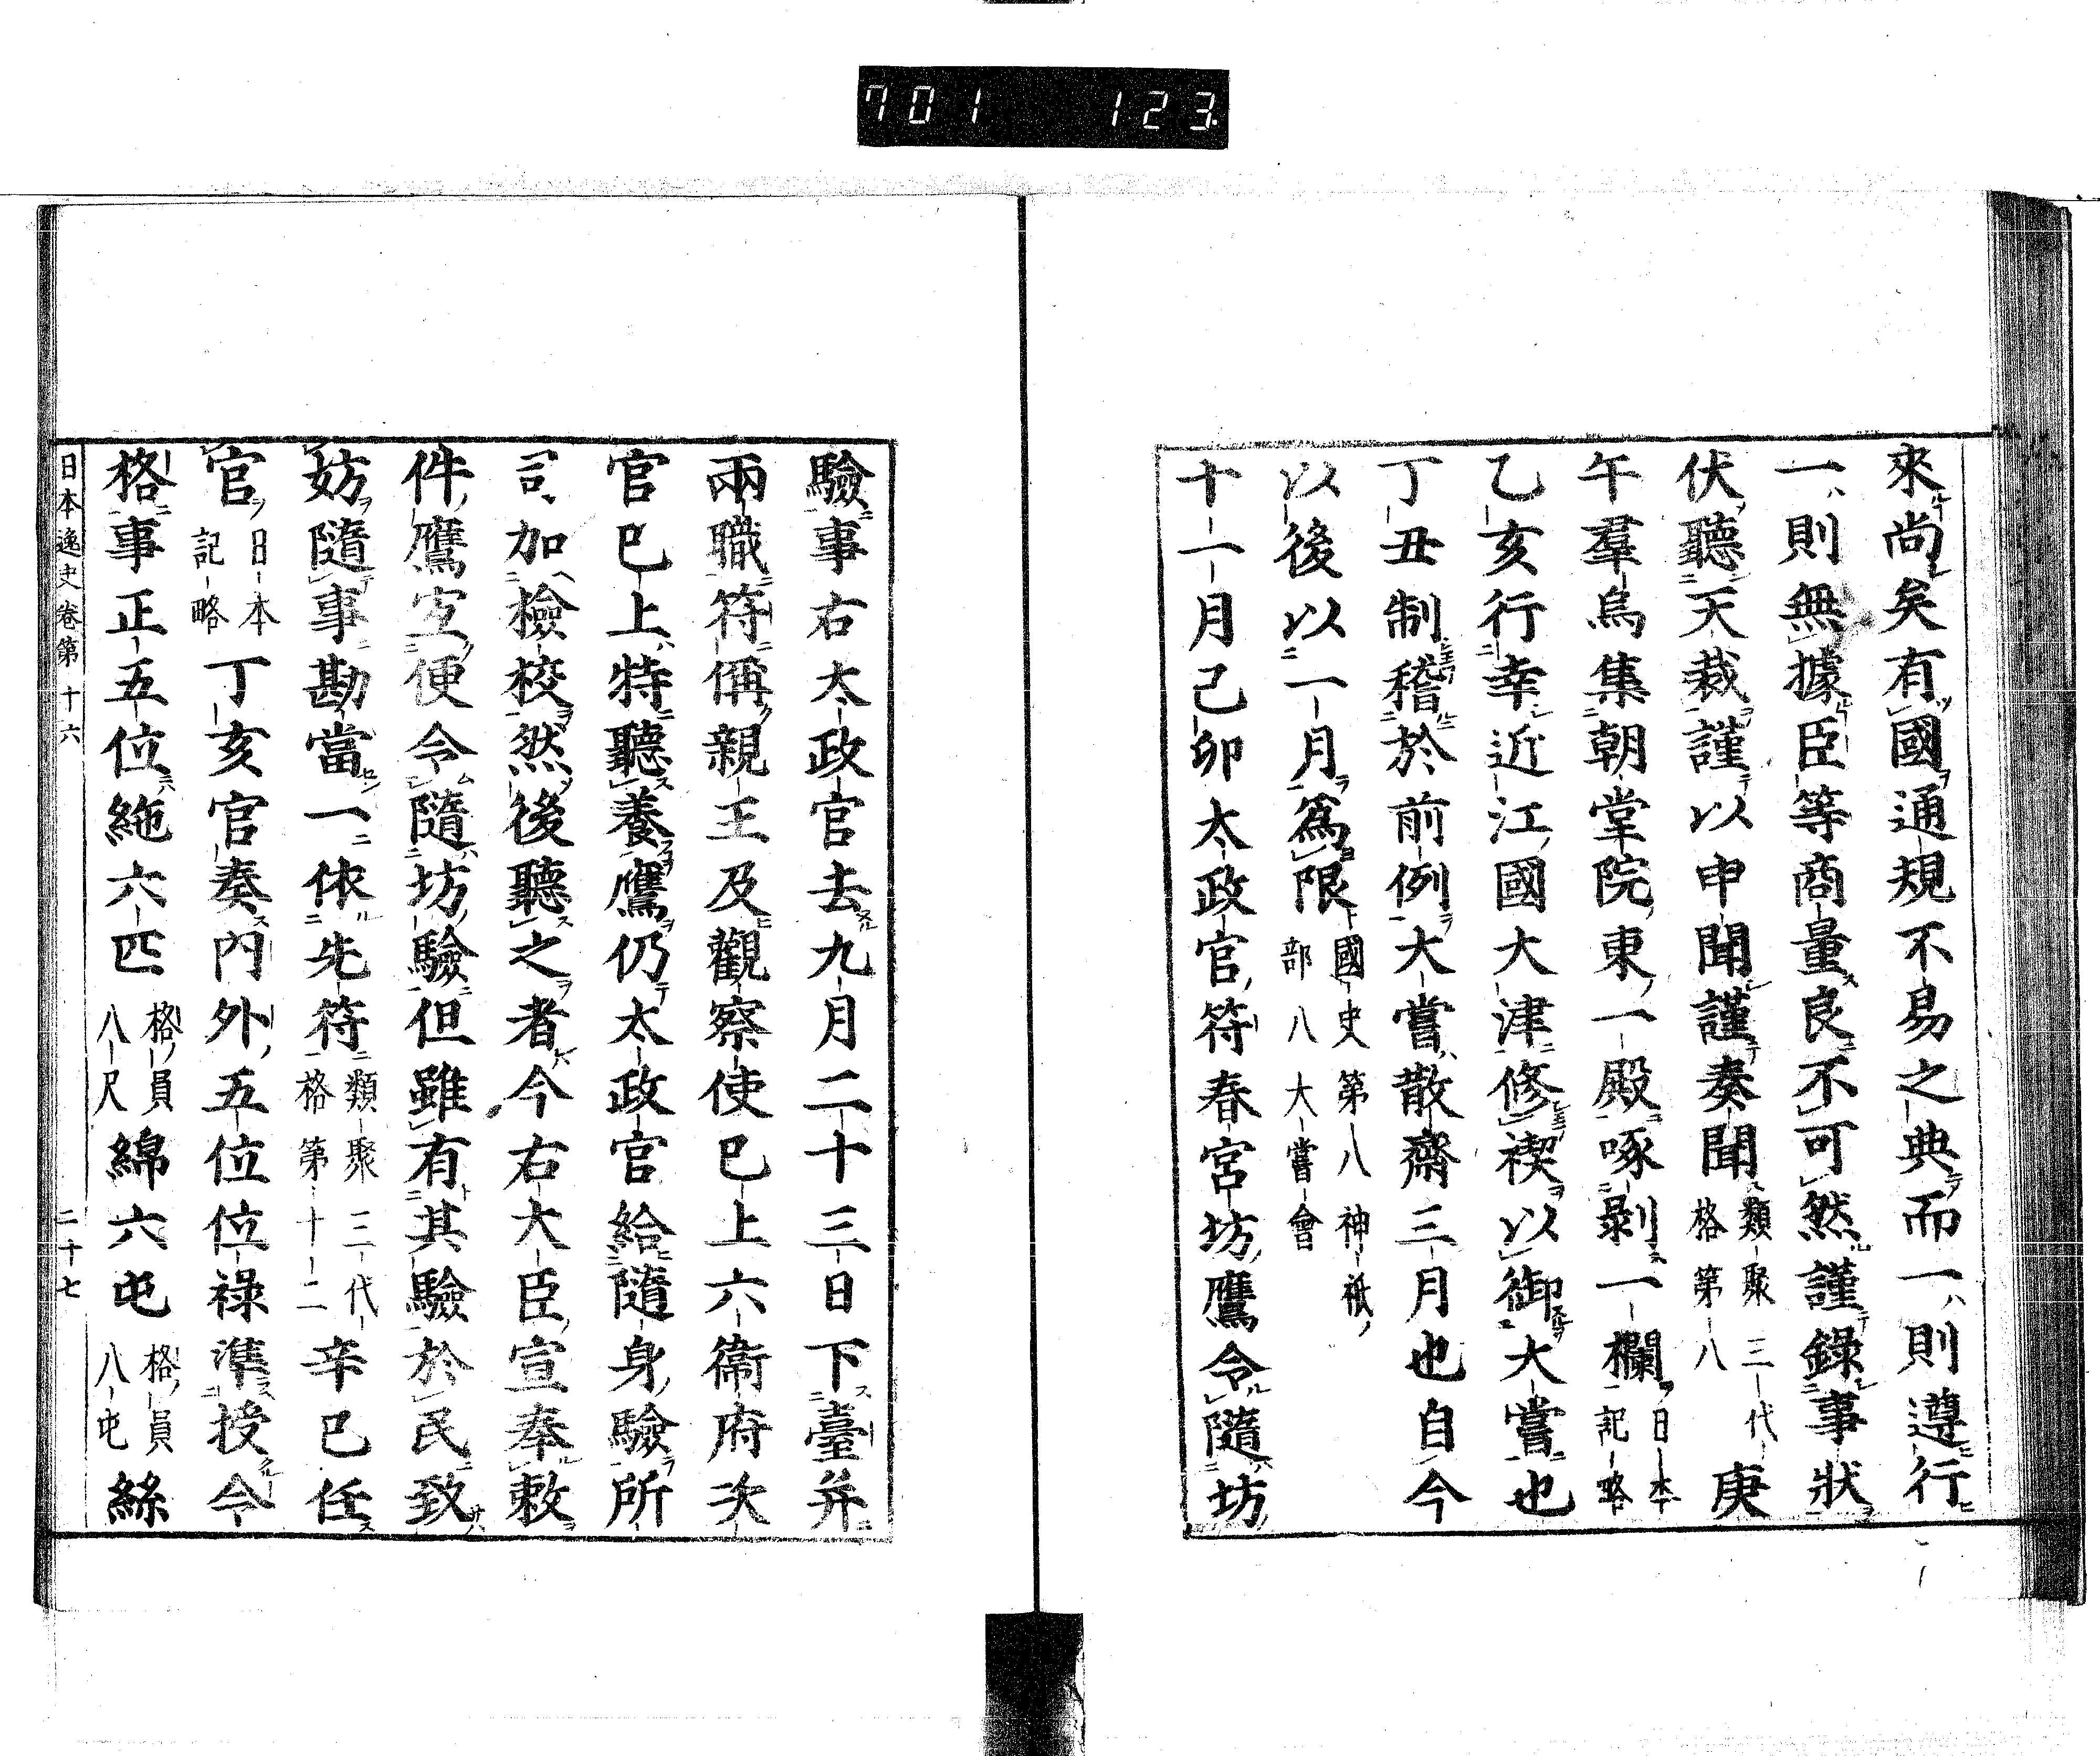 701 123
來尚矣有國通規不易之典而一則遵行
一則無據臣等商量良不可然謹錄事狀
伏聽天裁謹以申聞謹奏聞類聚三代格第八 庚
午羣烏集朝堂院東一殿啄剥一欄日本記略
乙亥行幸近江國大津修禊以御大嘗也
丁丑制稽於前例大嘗散齋三月也自今
以後以一月爲限國史第八神祇部八大嘗會
十一月己卯太政官符春宮坊鷹令隨坊
驗事右太政官去九月二十三日下臺并
兩職符偁親王及觀察使已上六衞府次
官已上特聽養鷹仍太政官給隨身驗所
司加檢校然後聽之者今右大臣宣奉敕
件鷹宜便令隨坊驗但雖有其驗於民致
妨隨事勘當一依先符類聚三代格第十二 辛巳任
官日本記略 丁亥官奏內外五位位祿準授令
格事正五位絁六匹格員八尺綿六屯格員八屯絲
日本逸史卷第十六 二十七